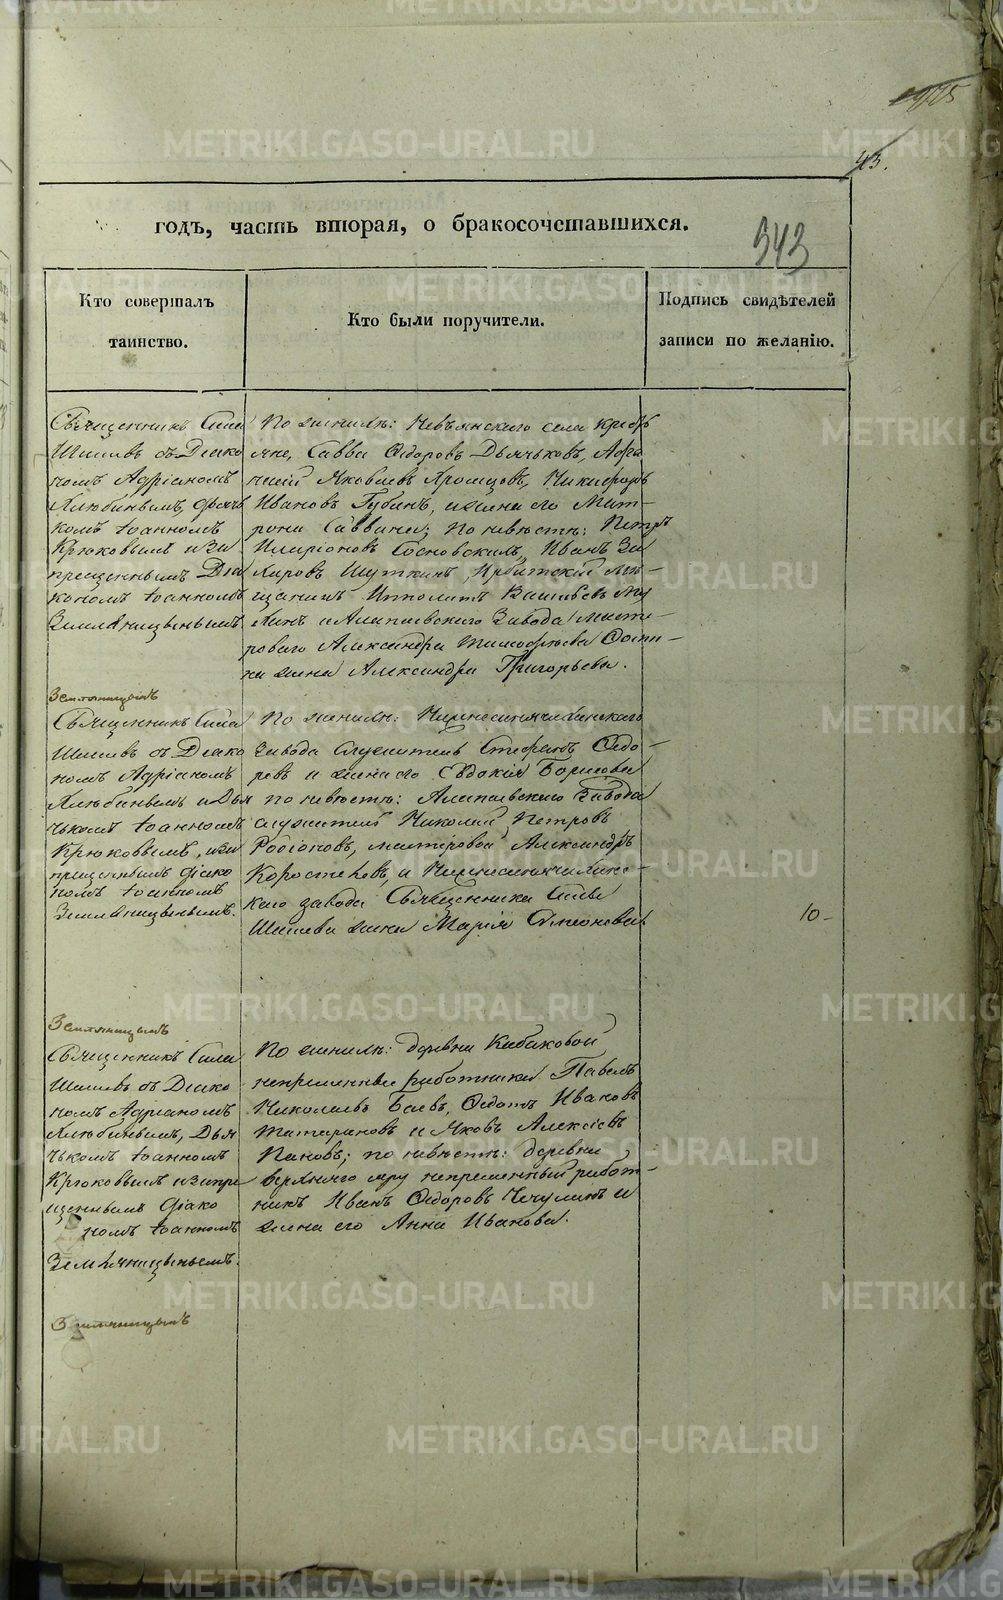 43.
годъ, часть вторая, о бракосочетавшихся.
343
Кто совершалъ
таинство.
Кто были поручители.
Подпись свидѣтелей
записи по желанію.
Священникъ Сила
Шишевъ съ Діако
номъ Адріаномъ
Хлюбинымъ, дьяч
комъ Іоанномъ
Крюковымъ и за
прещеннымъ Діа
кономъ Іоанномъ
Земляницынымъ
По женихѣ: Невьянскаго села крестья
не, Савва Ѳедоровъ Дьячьковъ, Афа
насій Яковлевъ Храмцовъ, Никифоръ
Ивановъ Губинъ, и жена его Мат-
рона Саввина; по невѣстѣ: Петръ
Иларіоновъ Сосновскихъ, Иванъ За
харовъ Шуткинъ, Ирбитскій мѣ-
щанинъ Ипполитъ Васильевъ
и Алапаевскаго Завода масте-
роваго Александра Тимофѣева
жена Александра Григорьева.
Земляницынъ
Священникъ Сила
Шишевъ съ Діако
номъ Адріаномъ
Хлюбинымъ и Дья
чькомъ Іоанномъ
Крюковымъ, и за
прещеннымъ діако
номъ Іоанномъ
Земляницынымъ.
По женихѣ: Нижнесинячихинскаго
Завода служитель Стефанъ Ѳедо-
ровъ и жена его Евдокія Борисова
по невѣстѣ: Алапаевскаго Завода
служитель Николай Петровъ
Родіоновъ, мастеровой Александръ
Коростелевъ, и Нижнесинячихинс-
каго завода Священника Силы
Шишева жена Марія Симеонова.
10-
Земляницынъ
Священникъ Сила
Шишевъ съ Діако
номъ Адріаномъ
Хлюбинымъ, Дья
чькомъ Іоанномъ
Крюковымъ и запре
щеннымъ діако
номъ Іоанномъ
Земляницынымъ.
По женихѣ: деревни Кабаковой
непременные работники Павелъ
Николаевъ Баевъ, Ѳедотъ Ивановъ
Татариновъ и Яковъ Алексѣевъ
Пановъ; по невѣстѣ: деревни
непременный работ-
никъ Иванъ Ѳедоровъ Чечулинъ и
жена его Анна Иванова.
Земляницынъ
METRIKI.GASO-URAL.RU